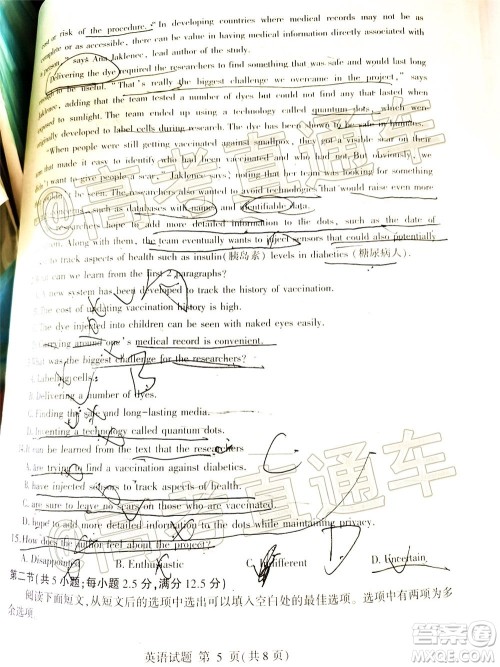 end or risk of the procedure." "In developing countries where medical records may not be as
complete or as accessible, there can be value in having medical information directly associated with
a person," says Ana Jaklenec, lead author of the study.
Delivering the dye required the researchers to find something that was safe and would last
enough to be useful. "That's really the biggest challenge we overcame in the project," says
Jaklenec, adding that the team tested a number of dyes but could not find any that lasted when
exposed to sunlight. The team ended up using a technology called quantum dots,
originally developed to label cells during research. The dye has been to be safe in humans.
"When people were still getting vaccinated for smallpox, they had a
that made it easy to identify who had been vaccinated and who
to give people a scar," Jaklenec says, noting that her team was looking for something
be seen. The researchers also wanted to avoid technologies that would raise even more
concerns, such as databases with names and identifiable data.
researchers hope to add more detailed information to the dots, such as the date of
Along with them, the team eventually wants to inject sensors that could also potentially
to track aspects of health such as insulin(胰岛素) levels in diabetics (糖尿病人).
can we learn from the first 2 paragraphs?
A new system has been developed to track the history of vaccination.
The cost of updating vaccination history is high.
The dye injected into children can be seen with naked eyes easily.
Carrying around one's medical record is convenient.
What was the biggest challenge for the researchers?
A. Labeling cells.
B. Delivering a number of dyes.
C. Finding the safe and long-lasting media.
D. Inventing a technology called quantum dots.
14. It can be learned from the text that the researchers
A. are trying to find a vaccination against diabetics.
B. have injected sensors to track aspects of health.
C. are sure to leave no scars on those who are vaccinated.
D. hope to add more detailed information to the dots while maintaining privacy.
15. How does the author feel about the project?
A. Disappointed B. Enthusiastic C. Indifferent D. Uncertain
第二节(共5小题;每小题2.5分,满分12.5分)
阅读下面短文,从短文后的选项中选出可以填入空白处的最佳选项。选项中有两项为多
余选项。
英语试题 第 5 页(共8页)
@高考直通车
@高考直通车
B
C.
D.
答案圈